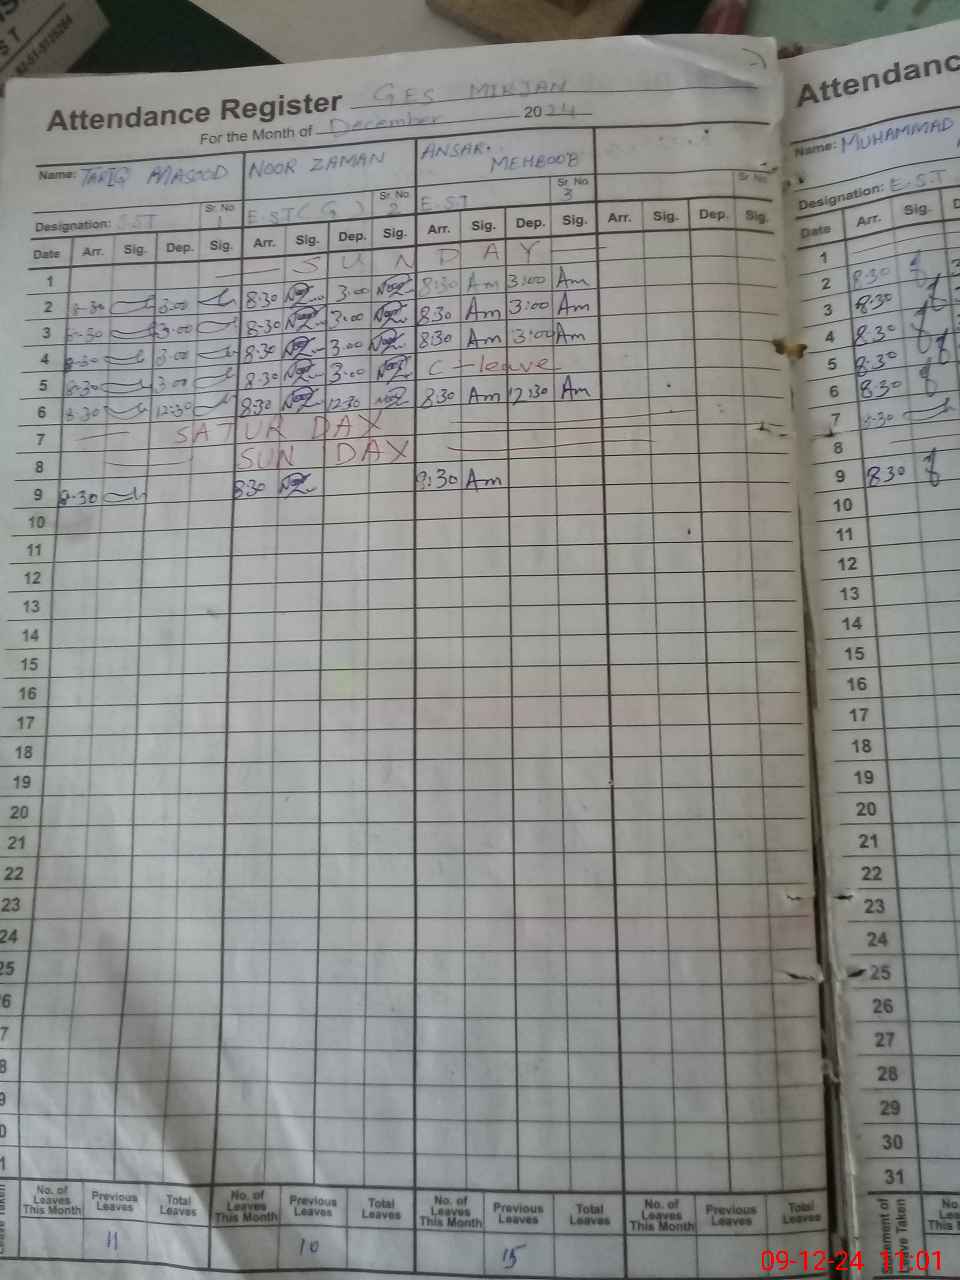 Attendance Register GES MIRJAN
For the Month of December 2024
Name: TARIQ MASOOD NOOR ZAMAN ANSAR MEHBOOB
Designation: SST Sr. No 1 E.ST(G) Sr. No 2 E.ST Sr. No 3 Sr. No
Date Arr. Sig. Dep. Sig. Arr. Sig. Dep. Sig. Arr. Sig. Dep. Sig. Arr. Sig. Dep. Sig.
1 SUNDAY
2 8-30 3.00 8.30 3.00 8:30 Am 3:00 Am
3 8-30 3.00 8-30 3:00 8:30 Am 3:00 Am
4 8-30 3.00 8.30 3.00 8:30 Am 3:00 Am
5 8-30 3.00 8.30 3:00 C-leave
6 8.30 12:30 8:30 12:30 8:30 Am 12:30 Am
7 SATURDAY
8 SUNDAY
9 8-30 8:30 8:30 Am
10
11
12
13
14
15
16
17
18
19
20
21
22
23
24
25
6
7
8
9
0
1
No. of Leaves This Month Previous Leaves Total Leaves No. of Leaves This Month Previous Leaves Total Leaves No. of Leaves This Month Previous Leaves Total Leaves No. of Leaves This Month Previous Leaves Total Leaves
11 10 15
Attendanc
Name: MUHAMMAD
Designation: E.S.T
Date Arr. Sig. D
1
2 8:30
3 8:30
4 8:30
5 8:30
6 8:30
7 8-30
8
9 8:30
10
11
12
13
14
15
16
17
18
19
20
21
22
23
24
25
26
27
28
29
30
31
No
Lea
This
09-12-24 11:01